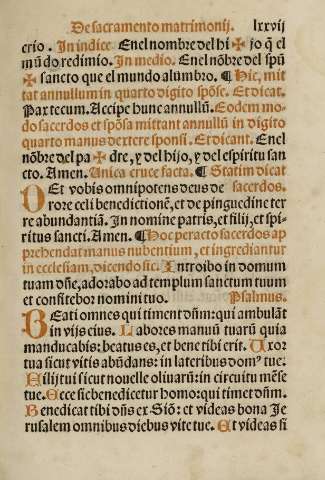 De sacramento matrimonij. lxxvij
crio. In indice. En el nombre del hi ✠ jo q̃ el
mũdo redimio. In medio. En el nõbre del spũ
✠ sancto que el mundo alumbro. ¶ Hic, mit
tat annullum in quarto digito spõse. Et dicat.
Pax tecum. Accipe hunc annullũ. Eodem mo-
do sacerdos et spõsa mittant annullũ in digito
quarto manus dextere sponsi. Et dicant. En el
nõbre del pa ✠ dre, y del hijo, y del espiritu san
cto. Amen. Unica cruce facta. ¶ Statim dicat
DEt vobis omnipotens deus de sacerdos.
rore celi benedictionẽ, et de pinguedine ter
re abundantiã. In nomine patris, et filij, et spi-
ritus sancti. Amen. ¶ Hoc peracto sacerdos ap
prehendat manus nubentium, et ingrediantur
in ecclesiam, dicendo sic. Introibo in domum
tuam dñe, adorabo ad templum sanctum tuum
et confitebor nomini tuo. Psalmus.
BEati omnes qui timent dñm: qui ambulãt
in vijs eius. Labores manuũ tuarũ quia
manducabis: beatus es, et bene tibi erit. Uxor
tua sicut vitis abũdans: in lateribus domꝰ tue.
Filij tui sicut nouelle oliuarũ: in circuitu mẽse
tue. Ecce sic benedicetur homo: qui timet dñm.
Benedicat tibi dñs ex Siõ: et videas bona Je
rusalem omnibus diebus vite tue. Et videas fi